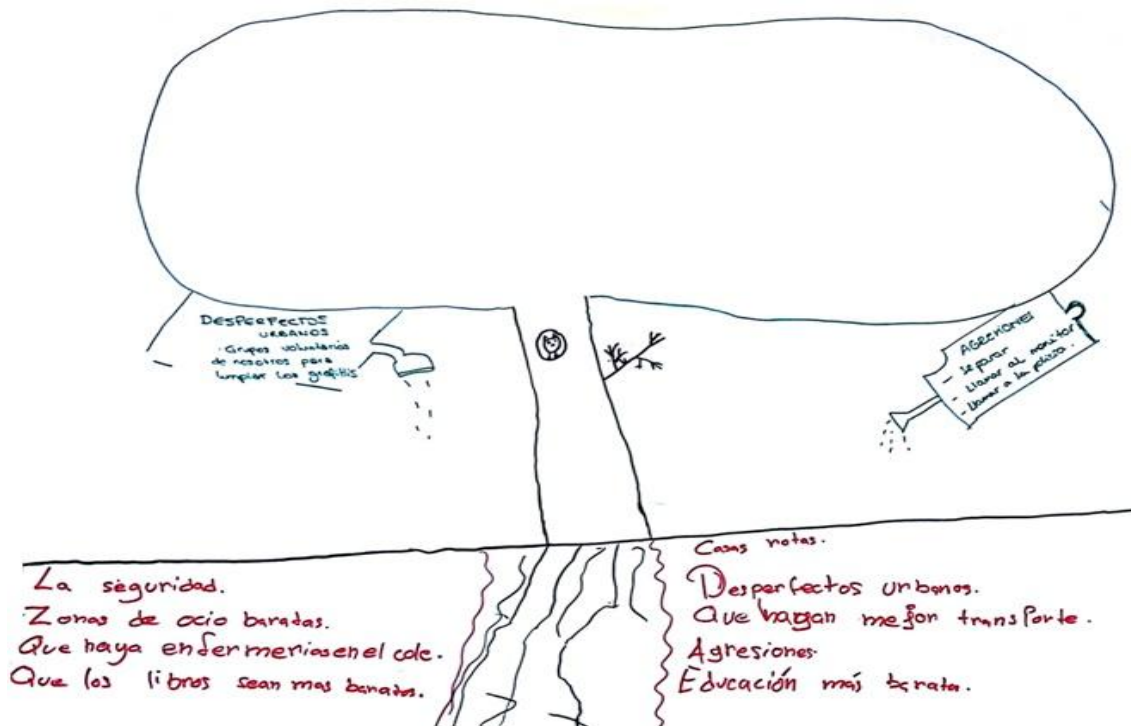 DESPERFECTOS
URBANOS
· Grupos voluntarios
de nosotros para
limpiar los grafittis
AGRESIONES
- Separar
- Llamar al monitor
- Llamar a la policía.
La seguridad.
Zonas de ocio baratas.
Que haya enfermerias en el cole.
Que los libros sean mas baratos.
Casas rotas.
Desperfectos urbanos.
Que hagan mejor transporte.
Agresiones.
Educación más barata.